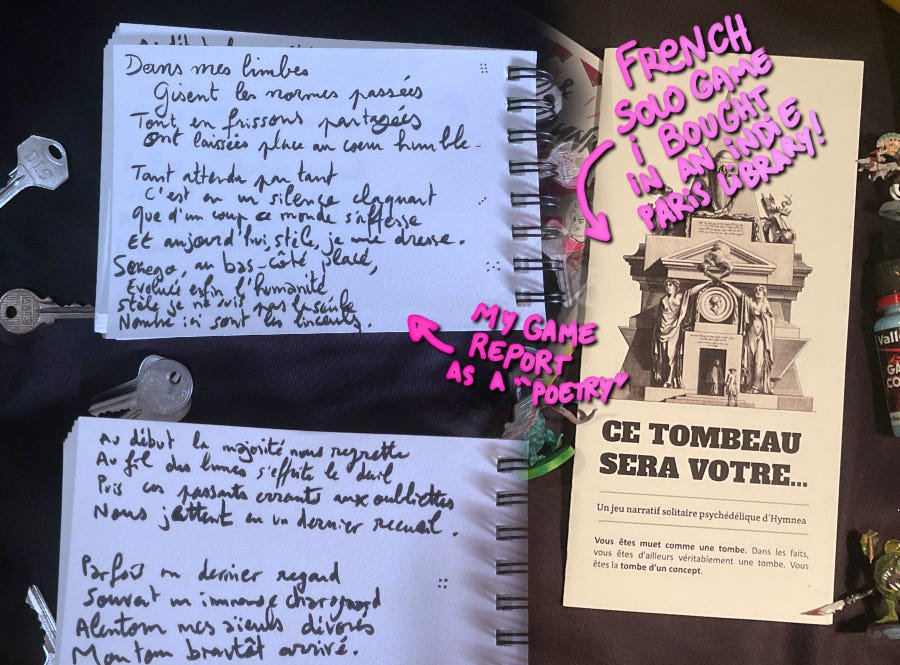 Dans mes limbes
Gisent les normes passées
Tout en frissons partagées
Ont laissées place au coeur humble.
Tant attendu par tant
C'est en un silence claquant
Que d'un coup ce monde s'affesse
Et aujourd'hui, stèle, je me dresse.
au bas-côté placé,
Evoluée enfin l'humanité
stèle je ne suis pas la seule
Nombre ici sont les linceuls.
Au début la majorité nous regrette
Au fil des lunes s'effrite le deuil
Puis ces passants errants aux oubliettes
Nous jettent en un dernier recueil.
Parfois un dernier regard
Souvent un immense charognard
Alentour mes aïeuls dévorés
Mon tour bientôt arrivé.
FRENCH
SOLO GAME
I BOUGHT
IN AN INDIE
PARIS LIBRARY!
MY GAME
REPORT
AS A "POETRY"
CE TOMBEAU
SERA VOTRE...
Un jeu narratif solitaire psychédélique d'Hymnea
Vous êtes muet comme une tombe. Dans les faits,
vous êtes d'ailleurs véritablement une tombe. Vous
êtes la tombe d'un concept.